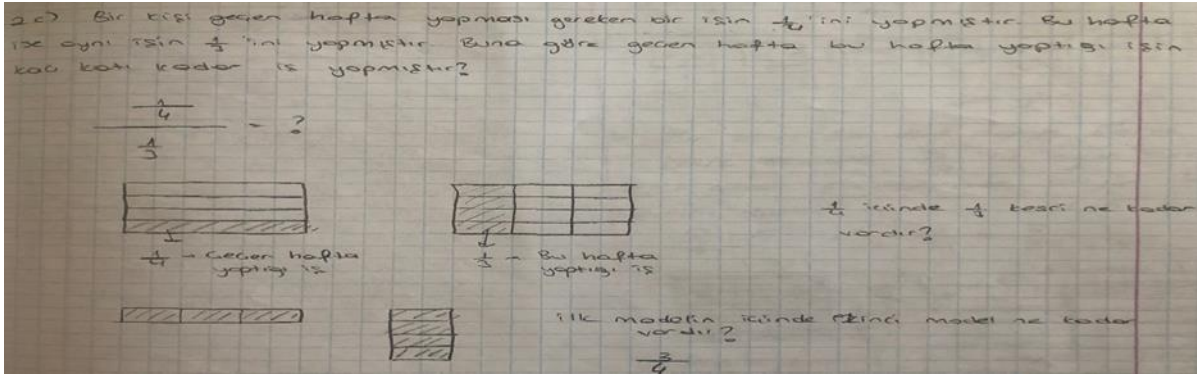 2c) Bir kişi geçen hafta yapması gereken bir işin 1/4'ini yapmıştır. Bu hafta
ise aynı işin 1/3'ini yapmıştır. Buna göre geçen hafta bu hafta yaptığı işin
kaç katı kadar iş yapmıştır?
1/4
1/3 = ?
1/4 içinde 1/3 kesri ne kadar
vardır?
1/4 → Geçen hafta
yaptığı iş
1/3 → Bu hafta
yaptığı iş
ilk modelin içinde ikinci model ne kadar
vardır?
3/4